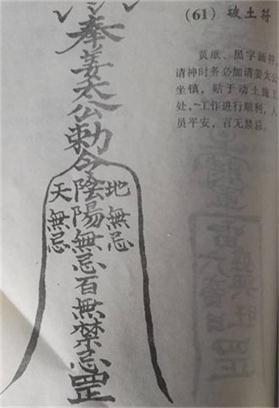 (61) 破土符
黄纸、黑字画符,
请神时务必加请姜太公
坐镇,贴于动土施工
处,~工作进行顺利,人
员平安,百无禁忌。
奉姜太公勅令
天無忌
陰陽無忌百無禁忌罡
地無忌